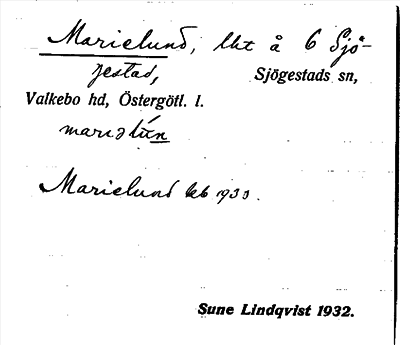 Marielund, lht å 6 Sjö-
gestad, Sjögestads sn,
Valkebo hd, Östergötl. l.
Marielund kb 1933.
Sune Lindqvist 1932.